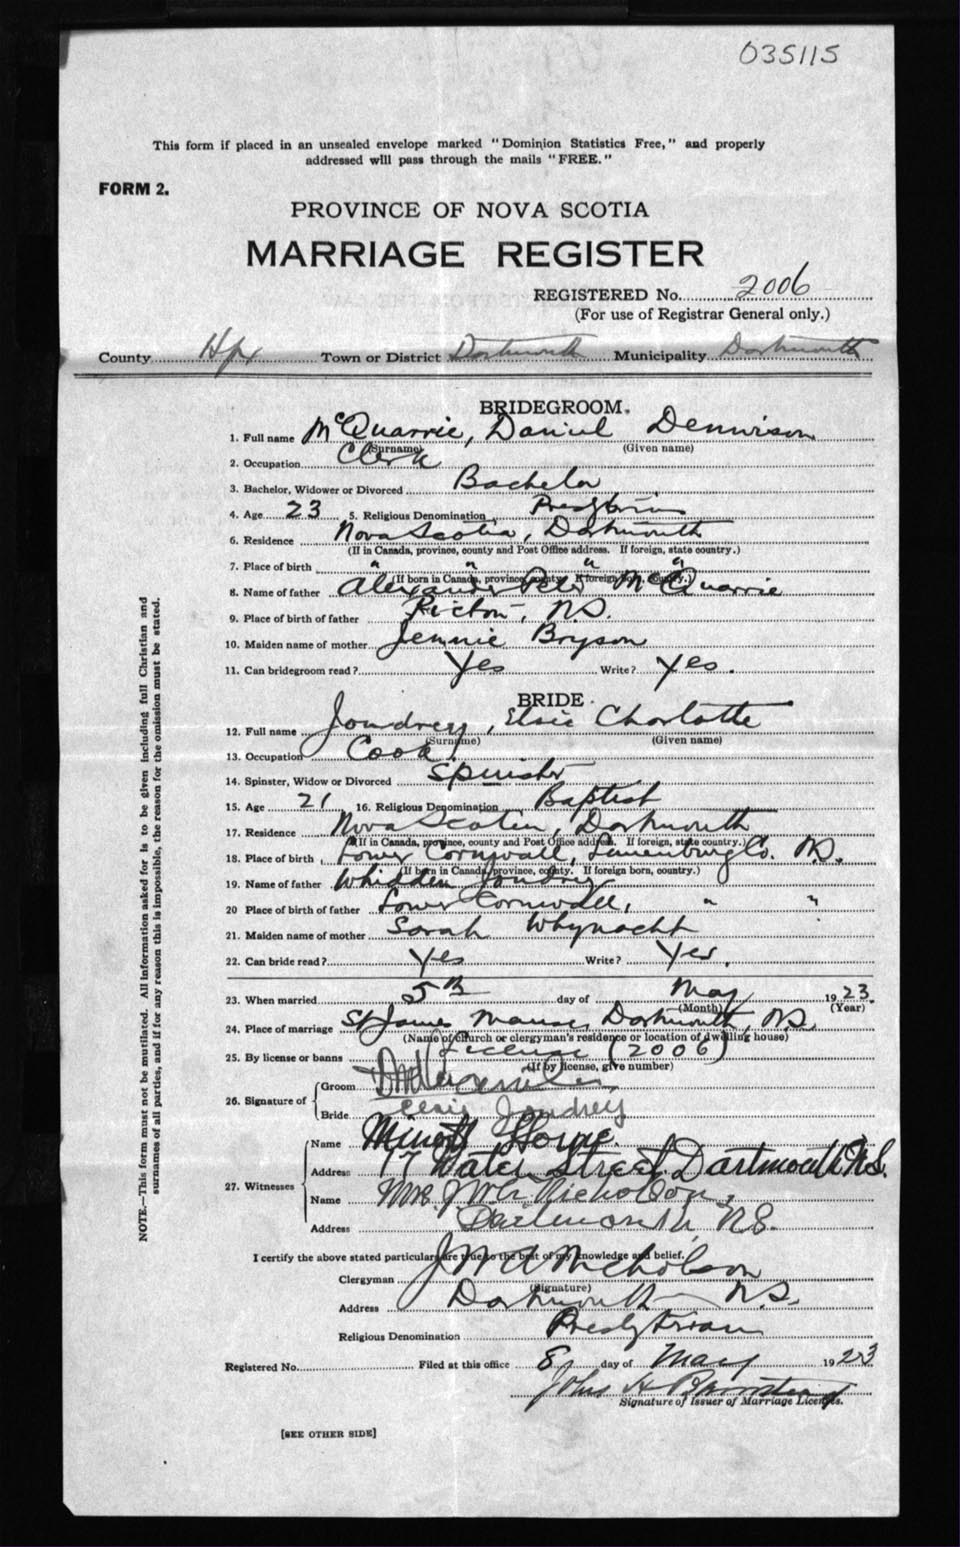 035115
This form if placed in an unsealed envelope marked "Dominion Statistics Free," and properly
addressed will pass through the mails "FREE."
FORM 2.
PROVINCE OF NOVA SCOTIA
MARRIAGE REGISTER
REGISTERED No. 2006
(For use of Registrar General only.)
County Hfx Town or District Dartmouth Municipality Dartmouth
BRIDEGROOM.
1. Full name McQuarrie, Daniel Dennison
(Surname) (Given name)
2. Occupation Clerk
3. Bachelor, Widower or Divorced Bachelor
4. Age 23 5. Religious Denomination Presbyterian
6. Residence Nova Scotia, Dartmouth
(If in Canada, province, county and Post Office address. If foreign, state country.)
7. Place of birth " " " "
(If born in Canada, province, county. If foreign born, country.)
8. Name of father Alexander Peter McQuarrie
9. Place of birth of father Pictou, N.S.
10. Maiden name of mother Jennie Bryson
11. Can bridegroom read? Yes Write? Yes.
BRIDE
12. Full name Joudrey, Elsie Charlotte
(Surname) (Given name)
13. Occupation Cook
14. Spinster, Widow or Divorced Spinster
15. Age 21 16. Religious Denomination Baptist
17. Residence Nova Scotia, Dartmouth
(If in Canada, province, county and Post Office address. If foreign, state country.)
18. Place of birth Lower Cornwall, Lunenburg Co. N.S.
(If born in Canada, province, county. If foreign born, country.)
19. Name of father Whidden Joudrey
20 Place of birth of father Lower Cornwall, " "
21. Maiden name of mother Sarah Whynacht
22. Can bride read? Yes Write? Yes.
23. When married 5th day of May 1923.
(Month) (Year)
24. Place of marriage St James Manse, Dartmouth, N.S.
(Name of church or clergyman's residence or location of dwelling house)
25. By license or banns License (2006)
(If by license, give number)
26. Signature of Groom
Bride Elsie Joudrey
27. Witnesses Name Minott
Address 77 Water Street Dartmouth N.S.
Name Mrs J W A Nicholson,
Address Dartmouth, N.S.
I certify the above stated particulars are true to the best of my knowledge and belief.
Clergyman J W A Nicholson
(Signature)
Address Dartmouth N.S.
Religious Denomination Presbyterian
Registered No. Filed at this office 8 day of May 1923
John H
Signature of Issuer of Marriage Licenses.
[SEE OTHER SIDE]
NOTE.—This form must not be mutilated. All information asked for is to be given including full Christian and
surnames of all parties, and if for any reason this is impossible, the reason for the omission must be stated.